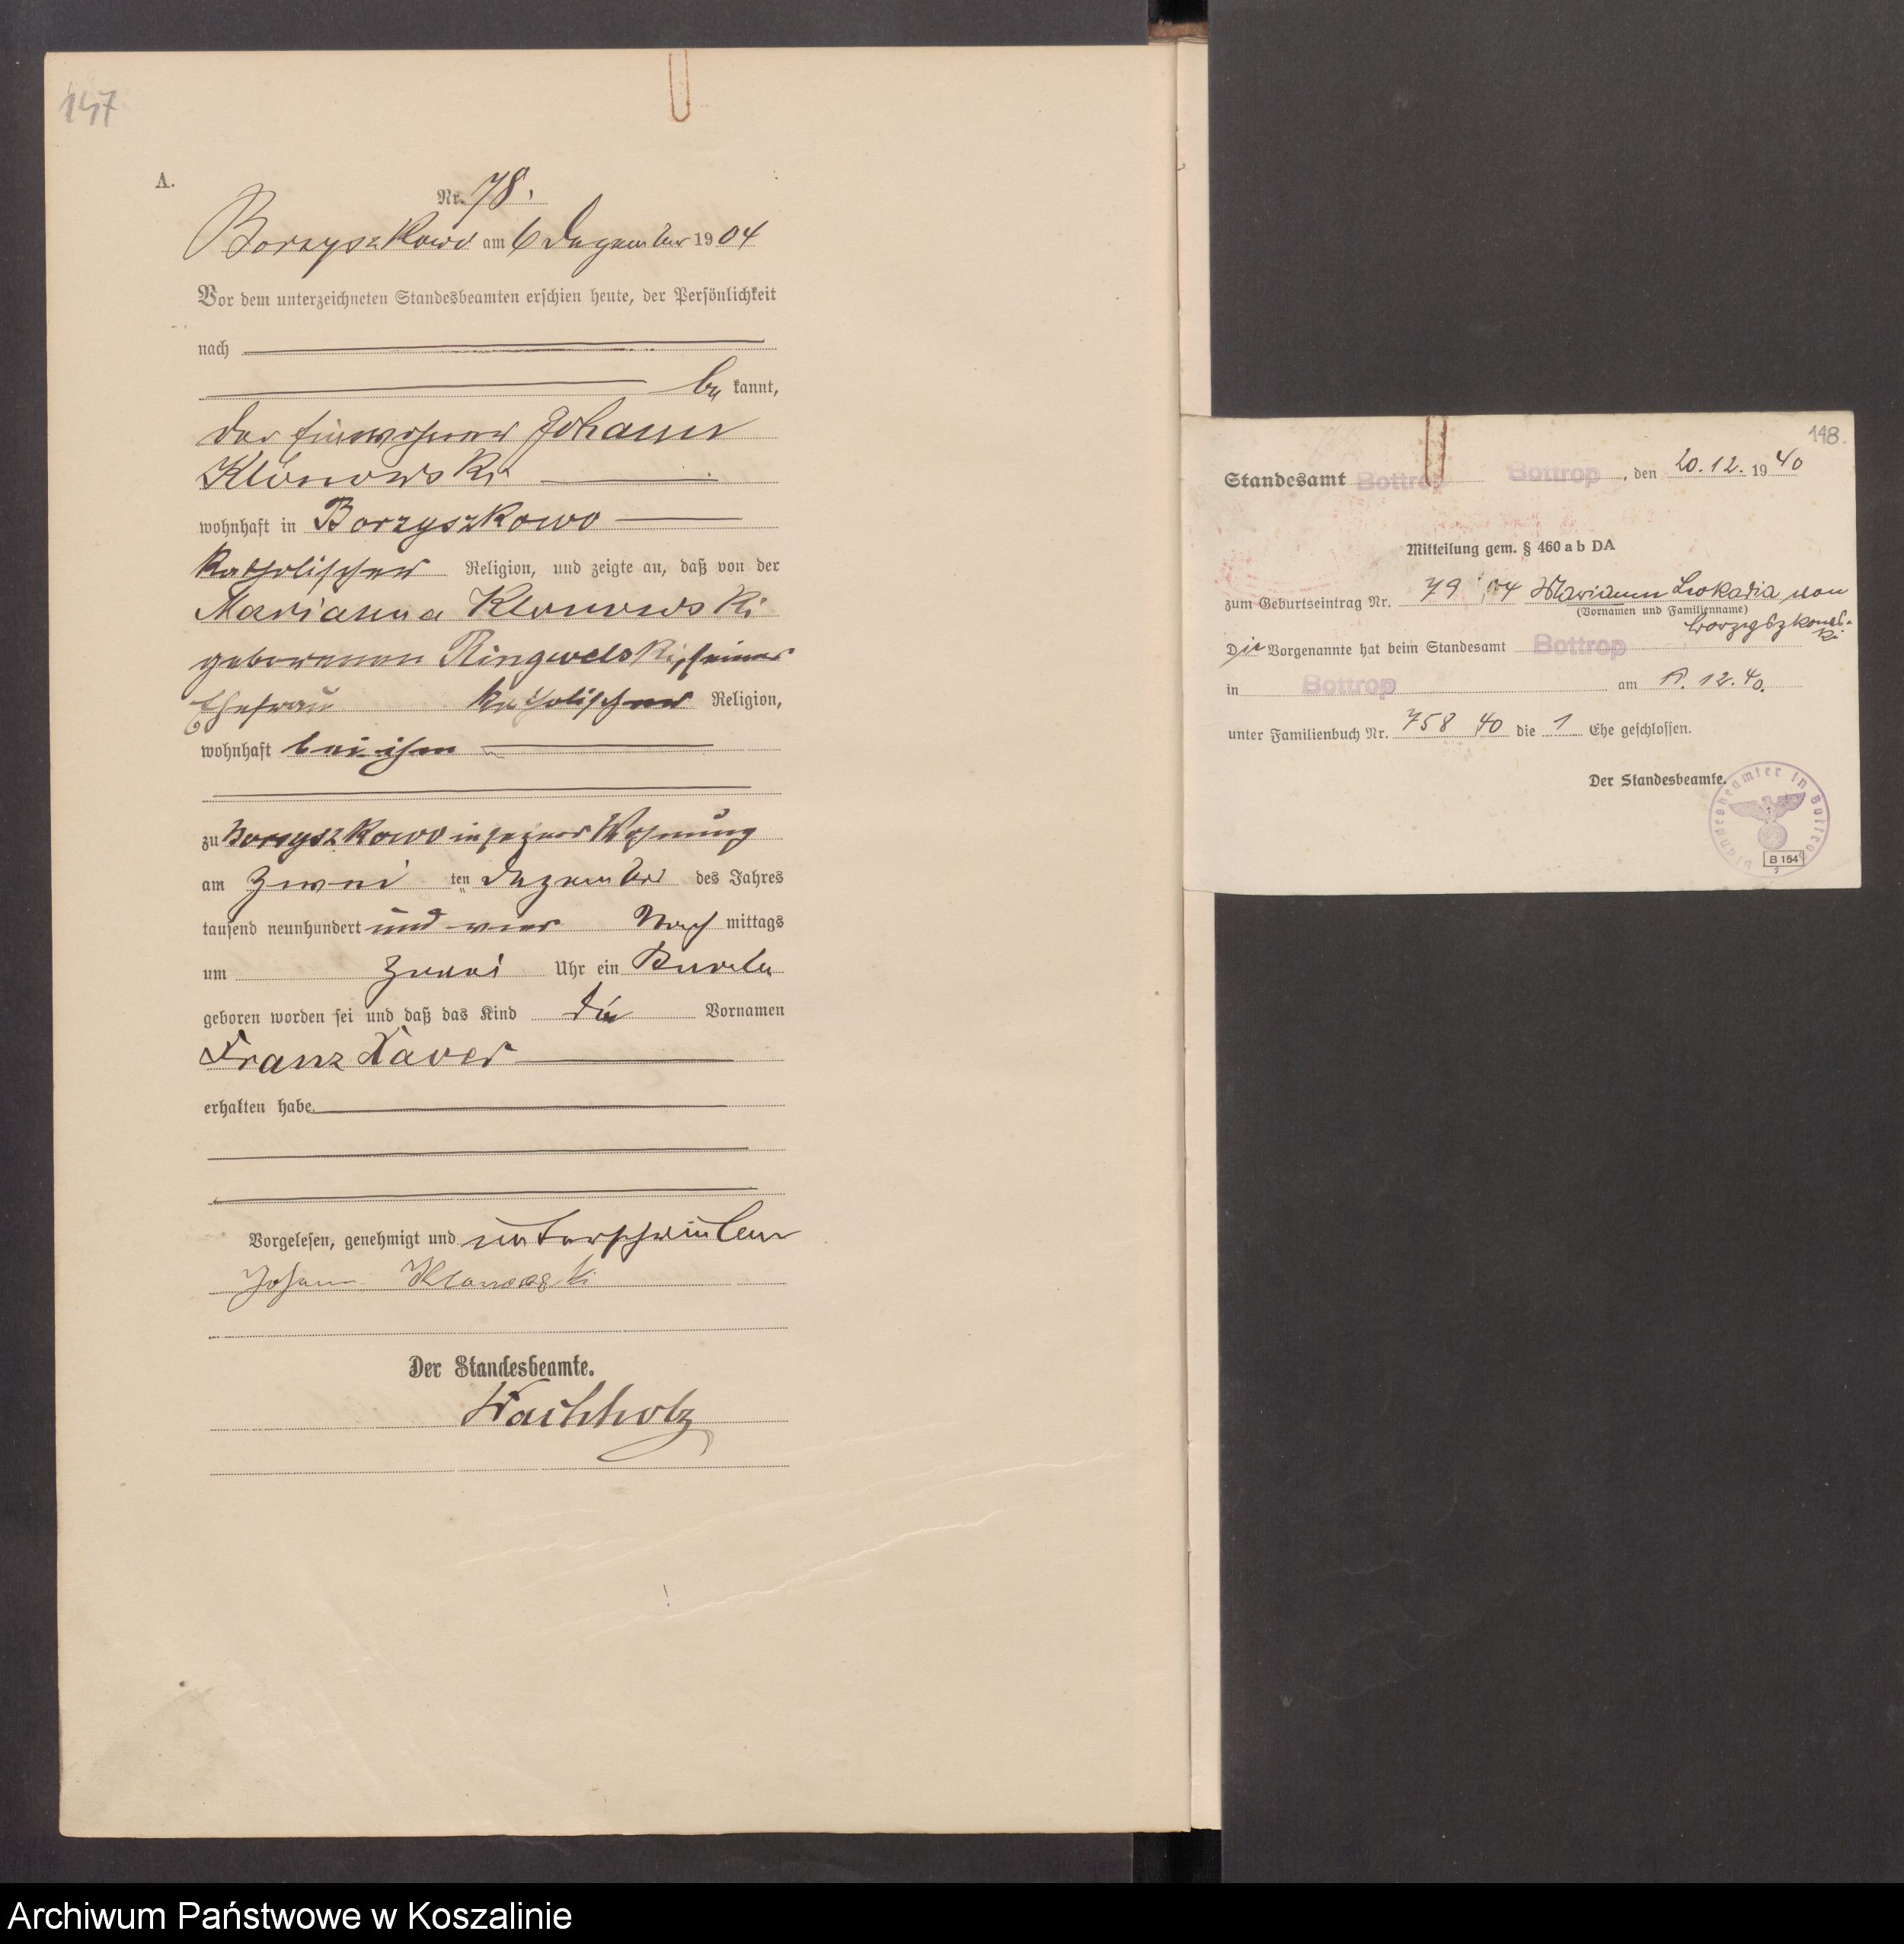 147
A.
Nr. 78.
Borzyszkowo am 6 Dezember 1904
Vor dem unterzeichneten Standesbeamten erschien heute, der Persönlichkeit
nach
be kannt,
der Einwohner Johann
Klonowski
wohnhaft in Borzyszkowo
katholischer Religion, und zeigte an, daß von der
Marianna Klonowski
geborenen Ringwelski, seiner
Ehefrau katholischer Religion,
wohnhaft bei ihm
zu Borzyszkowo in seiner Wohnung
am zwei ten Dezember des Jahres
tausend neunhundert und vier Nach mittags
um zwei Uhr ein Knabe
geboren worden sei und daß das Kind die Vornamen
Franz Xaver
erhalten habe.
Vorgelesen, genehmigt und unterschrieben
Johann Klonowski
Der Standesbeamte.
Wachholz
148.
Standesamt Bottrop Bottrop, den 20.12. 1940
Mitteilung gem. § 460 a b DA
zum Geburtseintrag Nr. 79 04 Mariann Leokadia von
(Vornamen und Familienname)
Borzyszkows-
ki
Die Vorgenannte hat beim Standesamt Bottrop
in Bottrop am 12.40.
unter Familienbuch Nr. 758 40 die 1 Ehe geschlossen.
Der Standesbeamte.
Standesbeamter in Bottrop
B 154
Archiwum Państwowe w Koszalinie